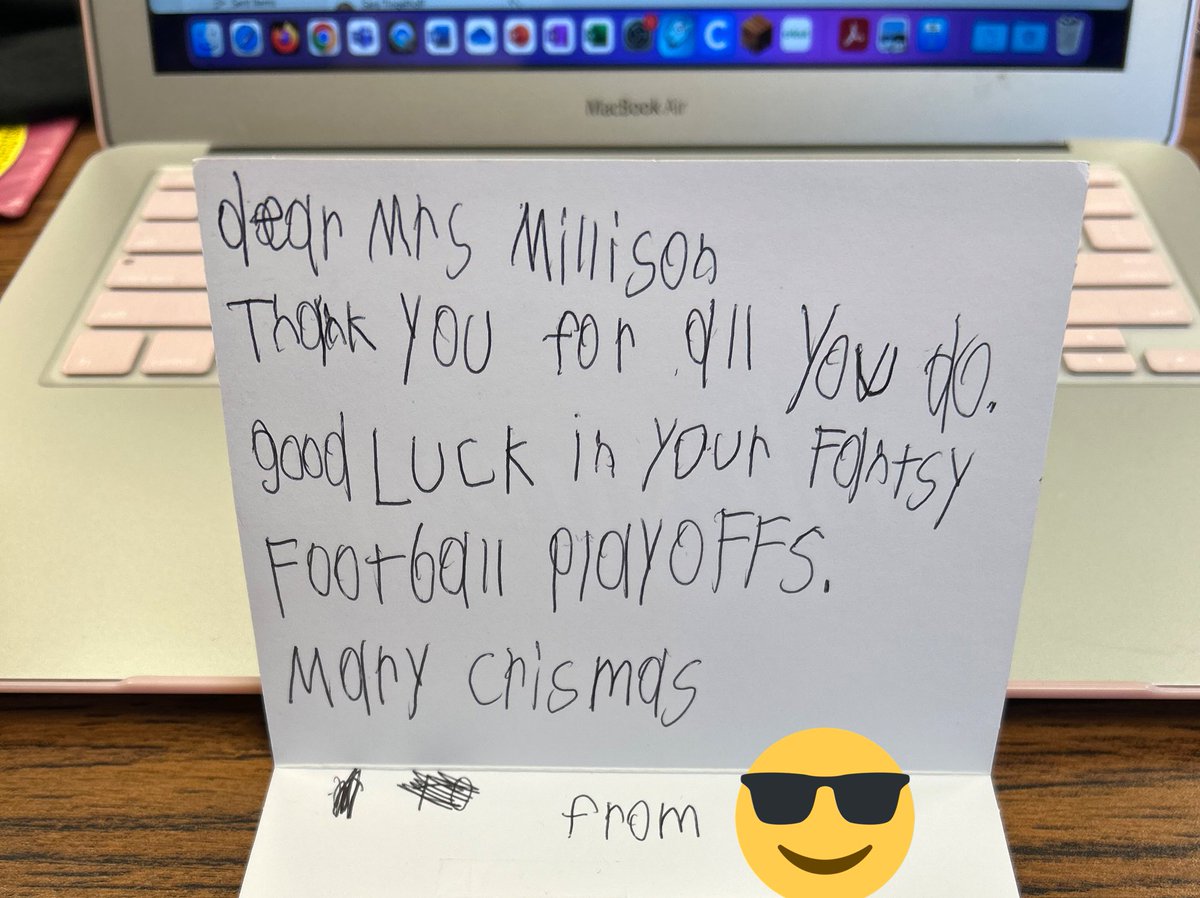 MacBook Air
dear Mrs Millison
Thank you for all you do.
good LUCK in your Fantsy
Football PlayOFFS.
Mary crismas
from